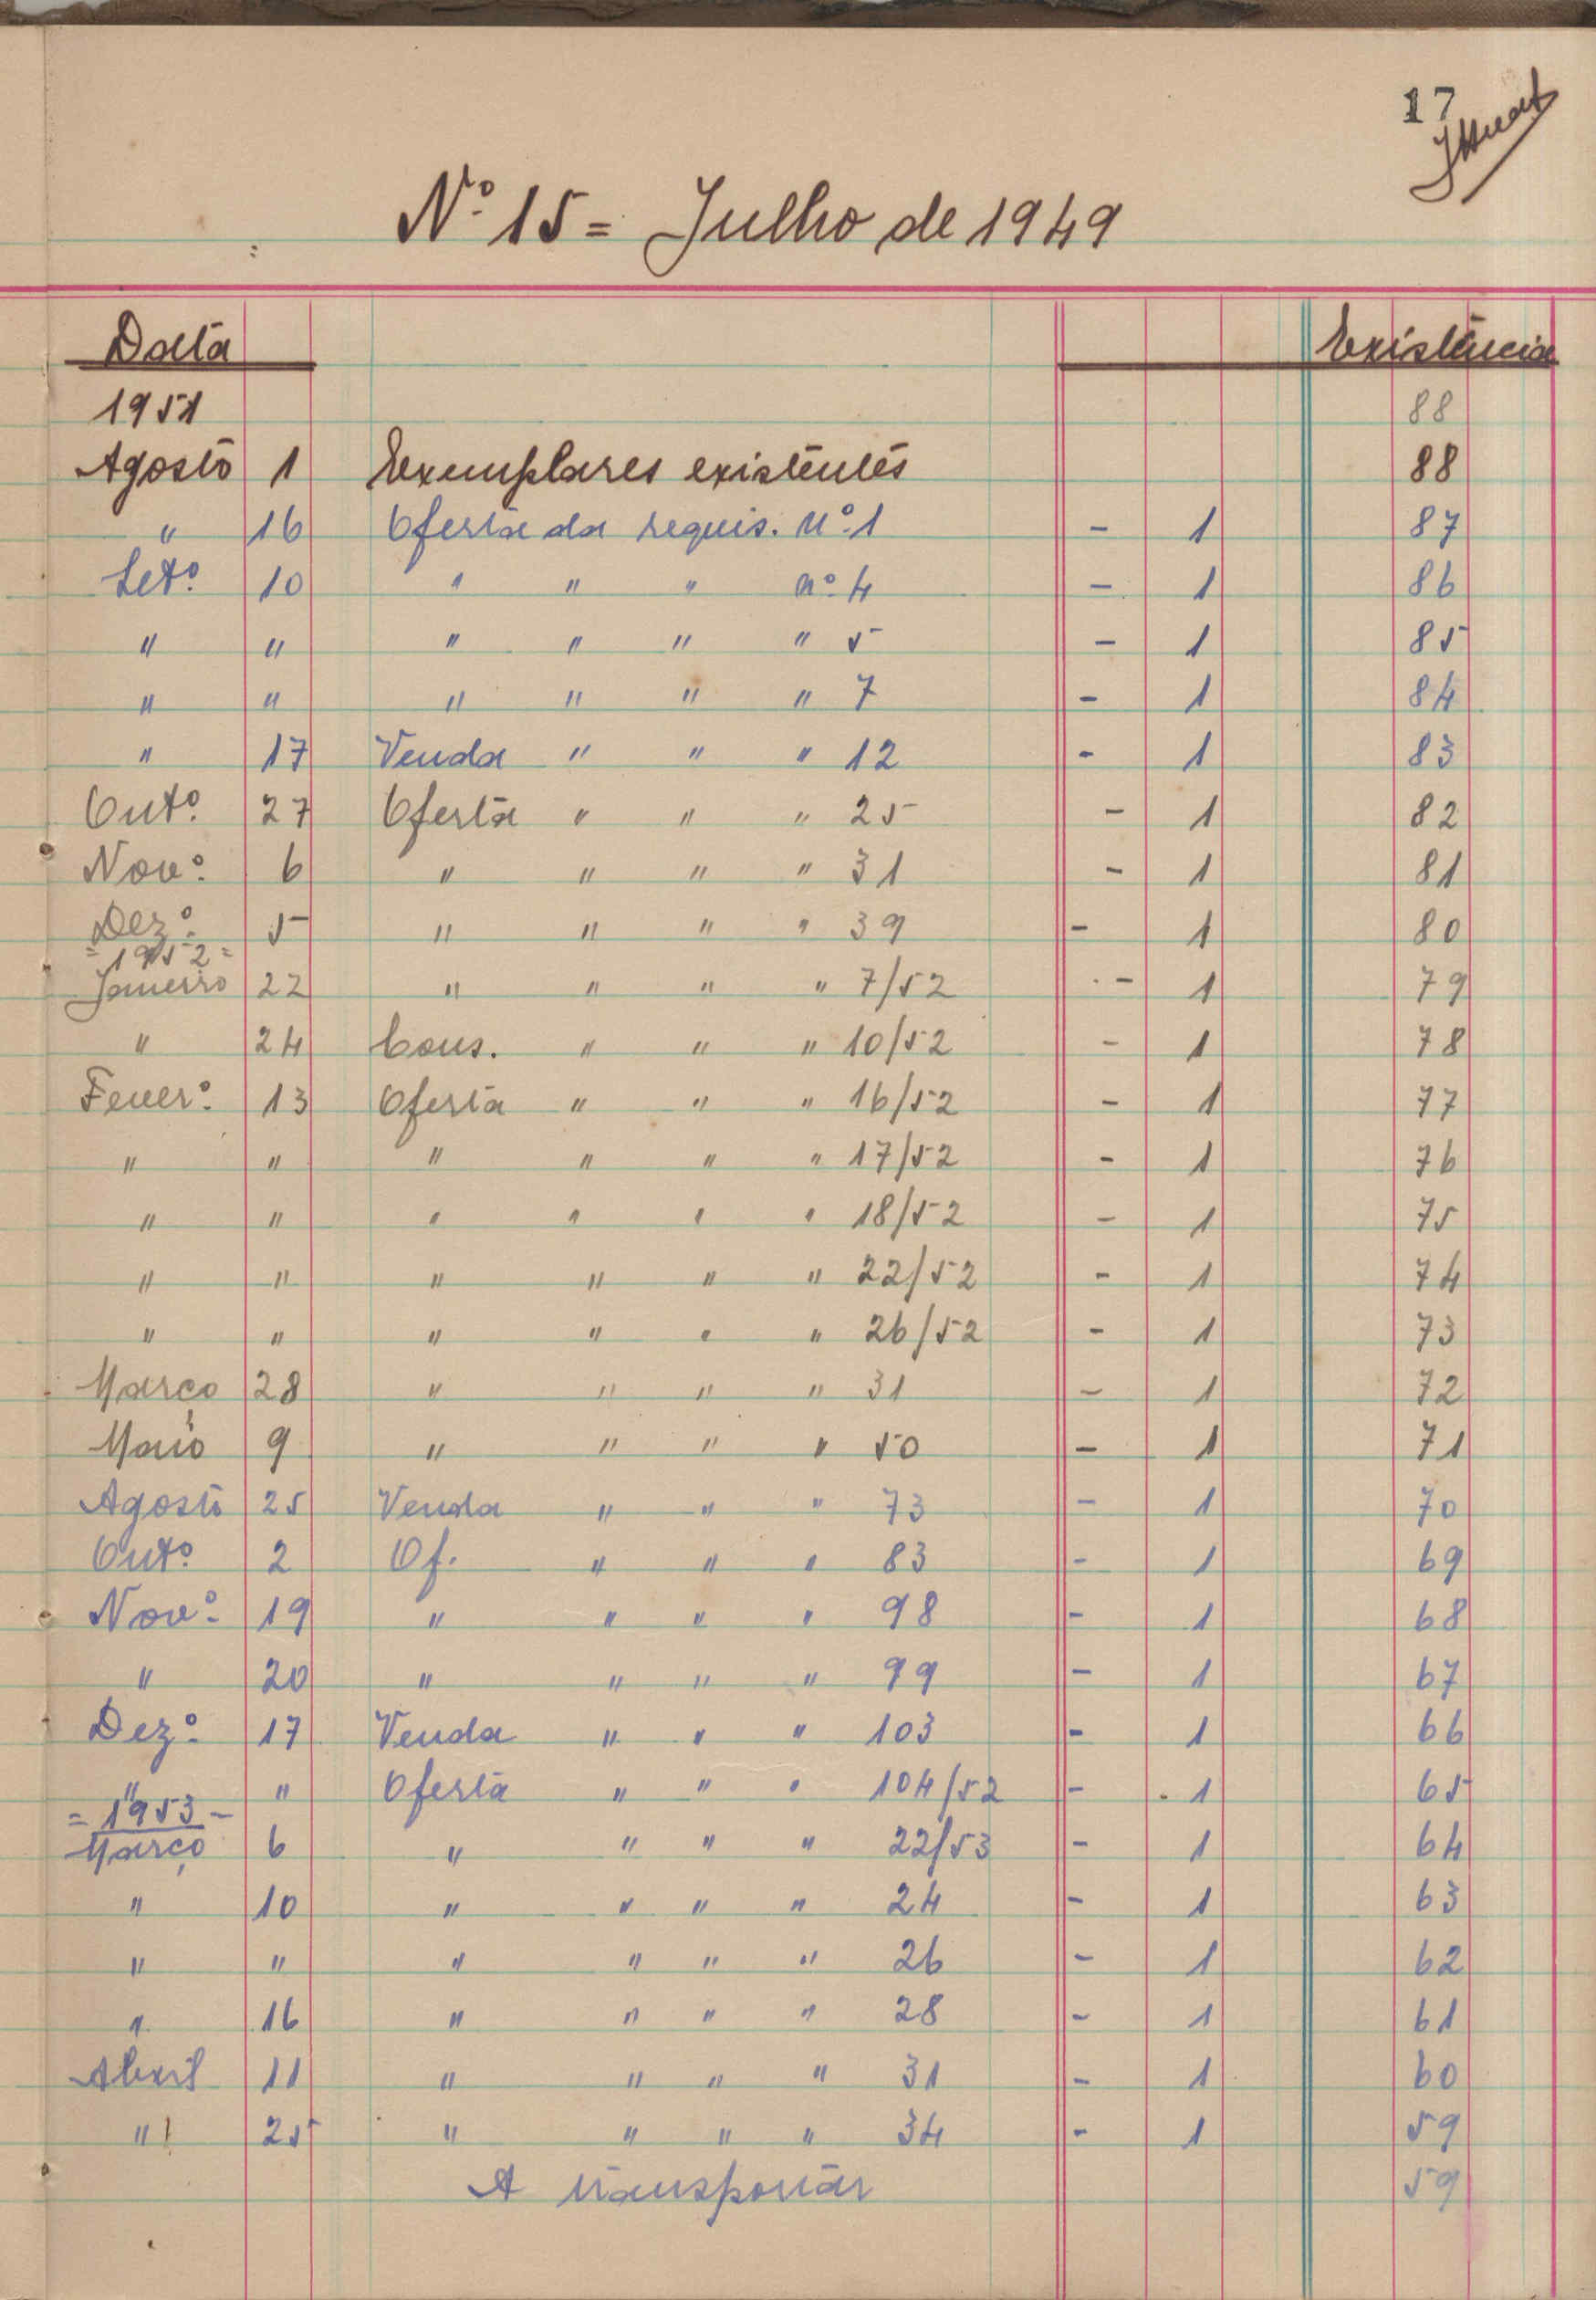 17
Nº 15 = Julho de 1949
Data Existência
1951 88
Agosto 1 Exemplares existentes 88
" 16 Oferta da requis. nº 1 - 1 87
Setº 10 " " " nº 4 - 1 86
" " " " " " 5 - 1 85
" " " " " " 7 - 1 84
" 17 Venda " " " 12 - 1 83
Outº 27 Oferta " " " 25 - 1 82
Novº 6 " " " " 31 - 1 81
Dezº 5 " " " " 39 - 1 80
= 1952 =
Janeiro 22 " " " " 7/52 - 1 79
" 24 Cons. " " " 10/52 - 1 78
Feverº 13 Oferta " " " 16/52 - 1 77
" " " " " " 17/52 - 1 76
" " " " " " 18/52 - 1 75
" " " " " " 22/52 - 1 74
" " " " " " 26/52 - 1 73
Março 28 " " " " 31 - 1 72
Maio 9 " " " " 50 - 1 71
Agosto 25 Venda " " " 73 - 1 70
Outº 2 Of. " " " 83 - 1 69
Novº 19 " " " " 98 - 1 68
" 20 " " " " 99 - 1 67
Dezº 17 Venda " " " 103 - 1 66
" " Oferta " " " 104/52 - 1 65
= 1953 -
Março 6 " " " " 22/53 - 1 64
" 10 " " " " 24 - 1 63
" " " " " " 26 - 1 62
" 16 " " " " 28 - 1 61
Abril 11 " " " " 31 - 1 60
" 25 " " " " 34 - 1 59
A transportar 59